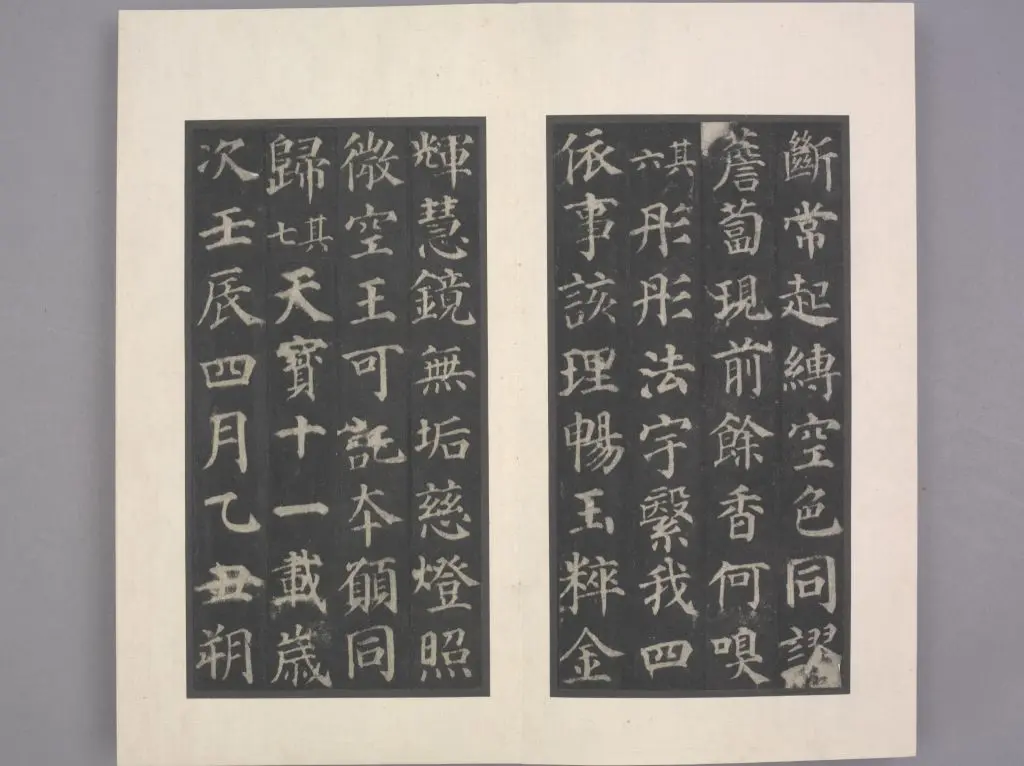 斷常起縛空色同謬
薝蔔現前餘香何嗅
其六彤彤法宇繄我四
依事該理暢玉粹金
輝慧鏡無垢慈燈照
微空王可託夲願同
歸其七天寶十一載歲
次壬辰四月乙丑朔